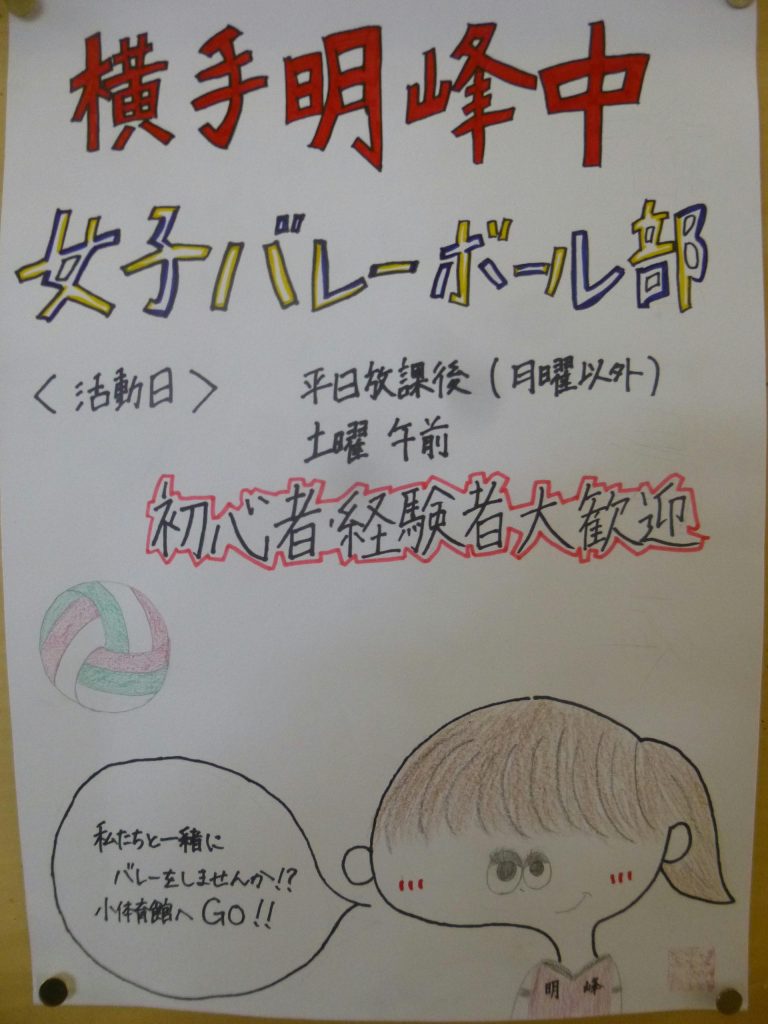 横手明峰中
女子バレーボール部
〈活動日〉 平日放課後(月曜以外)
土曜 午前
初心者・経験者大歓迎
私たちと一緒に
バレーをしませんか!?
小体育館へGO!!
明 峰